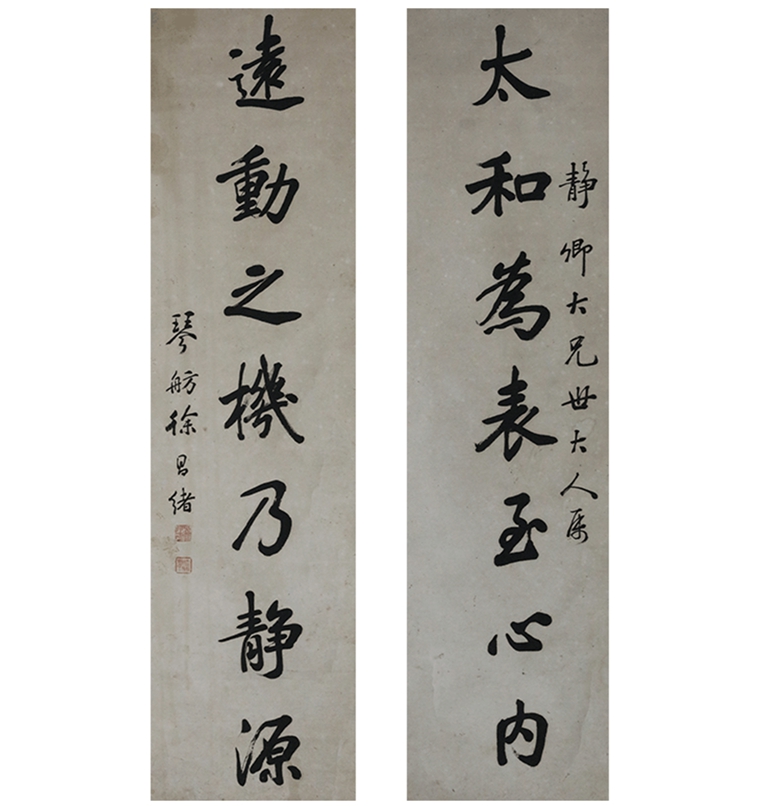 太和為表至心內
靜卿大兄世大人属
遠動之機乃靜源
琴舫徐昌緒